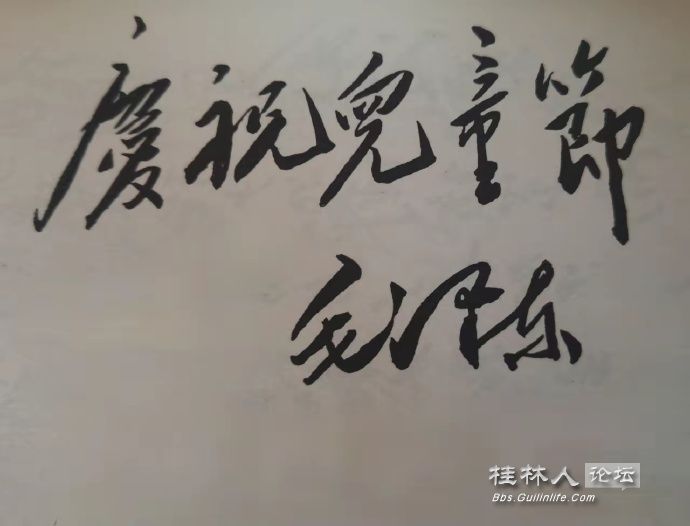 慶祝兒童節
毛泽东
桂林人论坛
Bbs.Guilinlife.com